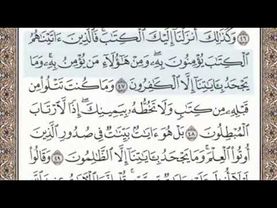 ٤٦ وَكَذَٰلِكَ أَنزَلْنَا إِلَيْكَ الْكِتَٰبَ فَالَّذِينَ ءَاتَيْنَٰهُمُ
الْكِتَٰبَ يُؤْمِنُونَ بِهِۦ وَمِنْ هَٰٓؤُلَآءِ مَن يُؤْمِنُ بِهِۦ وَمَا
يَجْحَدُ بِـَٔايَٰتِنَآ إِلَّا الْكَٰفِرُونَ ٤٧ وَمَا كُنتَ تَتْلُوا۟ مِن
قَبْلِهِۦ مِن كِتَٰبٍ وَلَا تَخُطُّهُۥ بِيَمِينِكَ إِذًا لَّارْتَابَ
الْمُبْطِلُونَ ٤٨ بَلْ هُوَ ءَايَٰتٌۢ بَيِّنَٰتٌ فِى صُدُورِ الَّذِينَ
أُوتُوا۟ الْعِلْمَ وَمَا يَجْحَدُ بِـَٔايَٰتِنَآ إِلَّا الظَّٰلِمُونَ ٤٩ وَقَالُوا۟